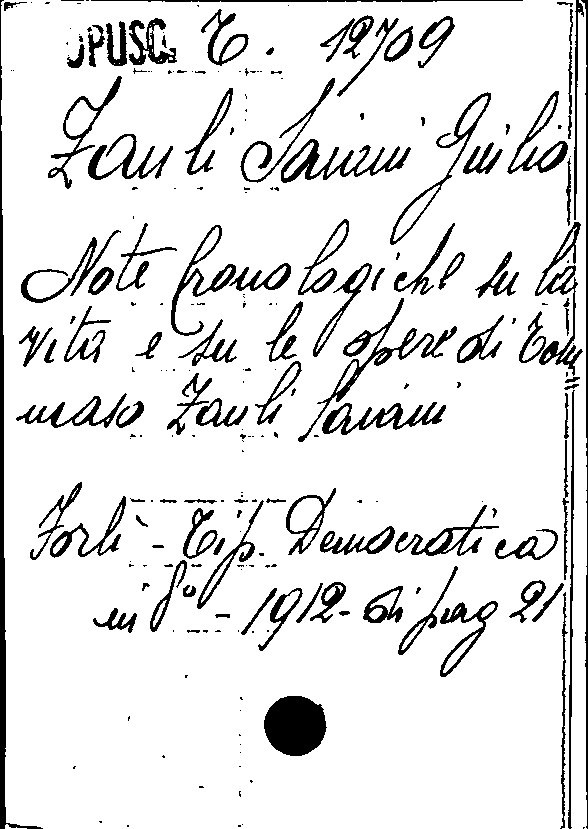 OPUSC. T. 12709
Zauli Saiani Giulio
Note Cronologiche su la
vita e su le opere di Tom=
maso Zauli Saiani
Forlì - Tip. Democratica
in 8° - 1912 - di pag 21